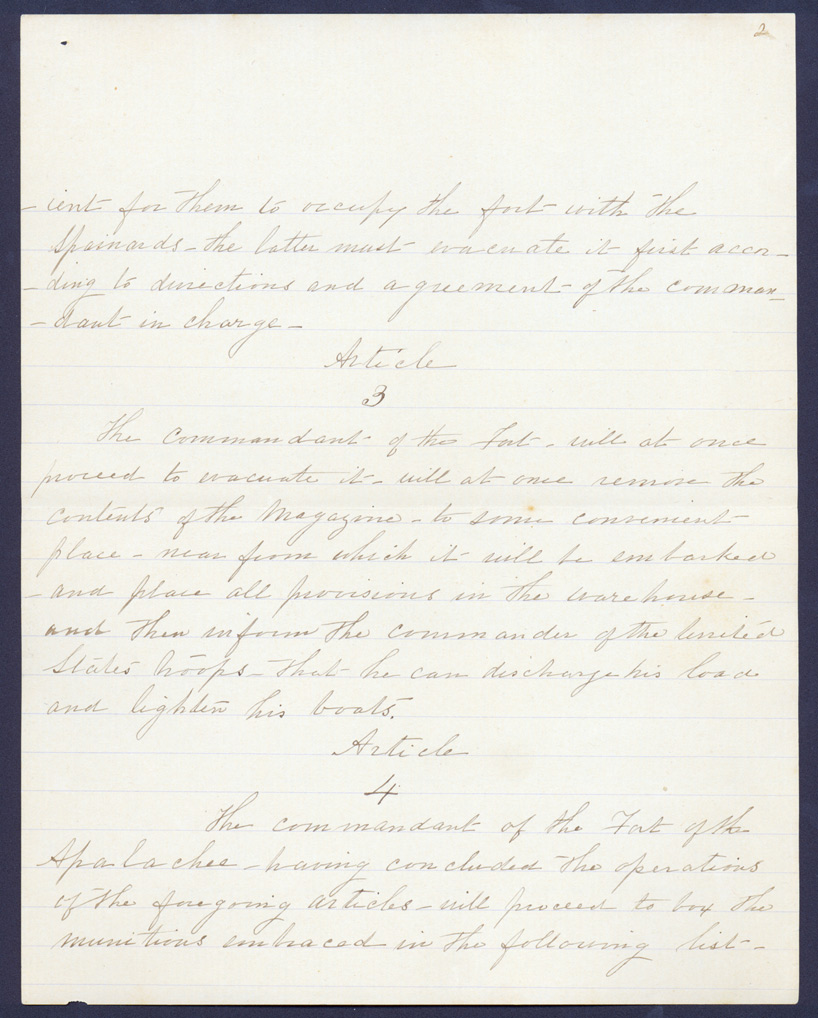 2
-ient for them to occupy the fort with the
Spainards - the latter must evacuate it first accor-
-ding to directions and agreement of the comman-
-dant in charge -
Article
3
The Commandant of the Fort - will at once
proceed to evacuate it - will at once remove the
contents of the Magazine - to some convenient
place - near from which it will be embarked
- and place all provisions in the warehouse -
and then inform the commander of the United
States troops - that he can discharge his load
and lighten his boats.
Article
4
The commandant of the Fort of the
Apalachee - having concluded the operations
of the foregoing articles - will proceed to box the
munitions embraced in the following list -